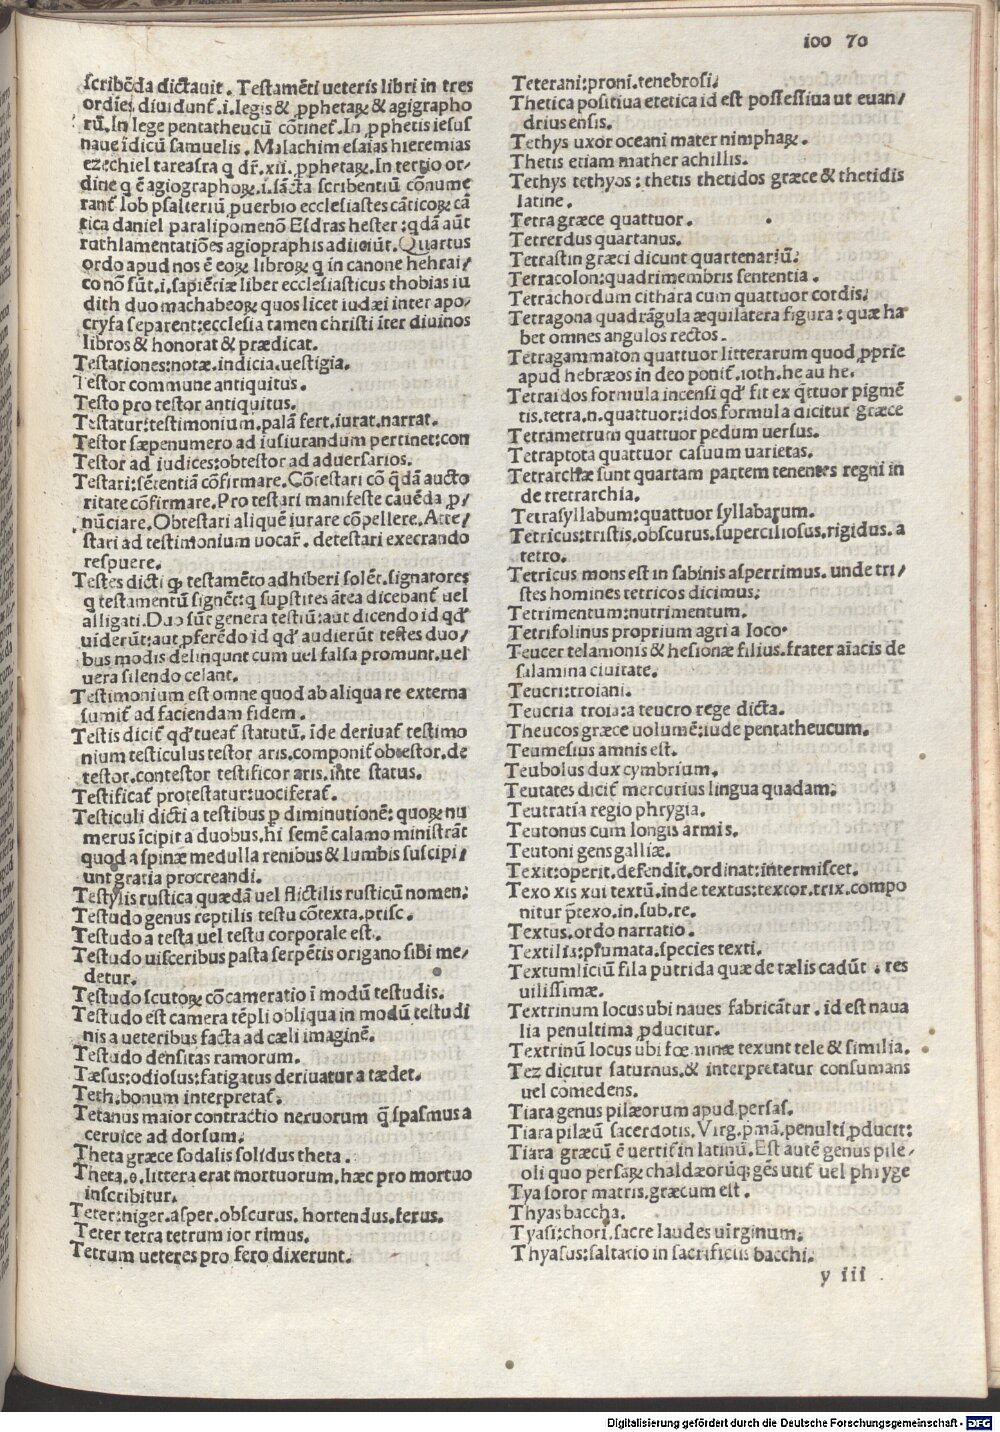 100 70
scribēda dictauit. Testamēti ueteris libri in tres
ordies diuidunt̄.i.legis & ꝓphetaꝝ & agigrapho
rū.In lege pentatheucū cōtinet̄.In ꝓphetis iesus
naue īdicū samuelis. Malachim esaias hieremias
ezechiel tareasra q dr̄.xii.ꝓphetaꝝ.In tertio or/
dine q ē agiographoꝝ.i.sācta scribentiū cōnume
rant̄ Iob psalteriū ꝓuerbio ecclesiastes cāticoꝝ cā
tica daniel paralipomenō Esdras hester:qdā aūt
ruthlamentatiōes agiopraphis adiiciūt.Quartus
ordo apud nos ē eoꝝ libroꝝ q in canone hebrai/
co nō sūt.i.sapiētiæ liber ecclesiasticus thobias iu
dith duo machabeoꝝ quos licet iudæi inter apo/
cryfa separent:ecclesia tamen christi īter diuinos
libros & honorat & prædicat.
Testationes:notæ.indicia.uestigia.
Testor commune antiquitus.
Testo pro testor antiquitus.
Testatur:testimonium.palā fert.iurat.narrat.
Testor sæpenumero ad iusiurandum pertinet:con
Testor ad iudices:obtestor ad aduersarios.
Testari:sētentiā cōfirmare. Cōtestari cō qdā aucto
ritate cōfirmare.Pro testari manifeste cauēda ꝓ/
nūciare.Obtestari aliquē iurare cōpellere.Atte/
stari ad testimonium uocar̄. detestari execrando
respuere.
Testes dicti ꝙ testamēto adhiberi solēt.signatores
q testamentū signēt:q supstites ātea dicebant̄ uel
alligati.Duo sūt genera testiū:aut dicendo id qd̄
uiderūt:aut ꝓferēdo id qd̄ audierūt testes duo/
bus modis delinqunt cum uel falsa promunt.uel
uera silendo celant.
Testimonium est omne quod ab aliqua re externa
sumit̄ ad faciendam fidem.
Testis dicit̄ qd̄ tueat̄ statutū. īde deriuat̄ testimo
nium testiculus testor aris.componit̄ obtestor.de
testor.contestor testificor aris.inte status.
Testificat̄ protestatur:uociferat̄.
Testiculi dicti a testibus ꝑ diminutionē: quoꝝ nu
merus īcipit a duobus.hi semē calamo ministrāt
quod a spinæ medulla renibus & lumbis suscipi/
unt gratia procreandi.
Testylis rustica quædā uel flictilis rusticū nomen;
Testudo genus reptilis testu cōtexta.ptisc.
Testudo a testa uel testu corporale est.
Testudo uisceribus pasta serpētis origano sibi me/
detur.
Testudo scutoꝝ cōcameratio ī modū testudis.
Testudo est camera tēpli obliqua in modū testudi
nis a ueteribus facta ad cæli imaginē.
Testudo densitas ramorum.
Tæsus:odiosus:fatigatus deriuatur a tædet.
Teth.bonum interpretat̄.
Tetanus maior contractio neruorum q̄ spasmus a
ceruice ad dorsum.
Theta græce sodalis solidus theta.
Theta.θ.littera erat mortuorum.hæc pro mortuo
inscribitur.
Teter:niger.asper.obscurus. hortendus.ferus.
Teter tetra tetrum ior rimus.
Tetrum ueteres pro fero dixerunt.
Teterani:proni.tenebrosi.
Thetica positiua etetica id est possessiua ut euan/
driusensis.
Tethys uxor oceani mater nimphaꝝ.
Thetis etiam mather achillis.
Tethys tethyos: thetis thetidos græce & thetidis
latine.
Tetra græce quattuor.
Tetrerdus quartanus.
Tetrastin græci dicunt quartenariū.
Tetracolon:quadrimembris sententia.
Tetrachordum cithara cum quattuor cordis.
Tetragona quadrāgula æquilatera figura: quæ ha
bet omnes angulos rectos.
Tetragammaton quattuor litterarum quod ꝓprie
apud hebræos in deo ponit̄.ioth.he au he.
Tetraidos formula incensi qd̄ fit ex q̄ttuor pigmē
tis.tetra.n.quattuor:idos formula dicitur græce
Tetrametrum quattuor pedum uersus.
Tetraptota quattuor casuum uarietas.
Tetrarchæ sunt quartam partem tenentes regni in
de tretrarchia.
Tetrasyllabum:quattuor syllabarum.
Tetricus:tristis.obscurus.superciliosus.rigidus. a
tetro.
Tetricus mons est in sabinis asperrimus. unde tri/
stes homines tetricos dicimus.
Tetrimentum:nutrimentum.
Tetrifolinus proprium agri a Ioco.
Teucer telamonis & hesionæ filius.frater aiacis de
salamina ciuitate.
Teucri:troiani.
Teucria troia:a teucro rege dicta.
Theucos græce uolumē:iude pentatheucum.
Teumesius amnis est.
Teubolus dux cymbrium.
Teutates dicit̄ mercurius lingua quadam.
Teutratia regio phrygia.
Teutonus cum longis armis.
Teutoni gens galliæ.
Texit:operit.defendit.ordinat:intermiscet.
Texo xis xui textū.inde textus:textor.trix.compo
nitur p̄texo.in.sub.re.
Textus.ordo narratio.
Textilis:plumata.species texti.
Textumliciū fila putrida quæ de tælis cadūt. res
uilissimæ.
Textrinum locus ubi naues fabricātur. id est naua
lia penultima ꝓducitur.
Textrinū locus ubi fœminæ texunt tele & similia.
Tez dicitur saturnus.& interpretatur consumans
uel comedens.
Tiara genus pilæorum apud persas.
Tiara pilæū sacerdotis. Virg.pmā.penulti ꝓducit:
Tiara græcū ē uertit̄ in latinū. Est autē genus pile/
oli quo persaꝝ chaldæorūq; gēs utit̄ uel phryge
Tya soror matris.græcum est.
Thyas baccha.
Tyasi:chori.sacre laudes uirginum.
Thyasus:saltatio in sacrificiis bacchi.
y iii
Digitalisierung gefördert durch die Deutsche Forschungsgemeinschaft - DFG